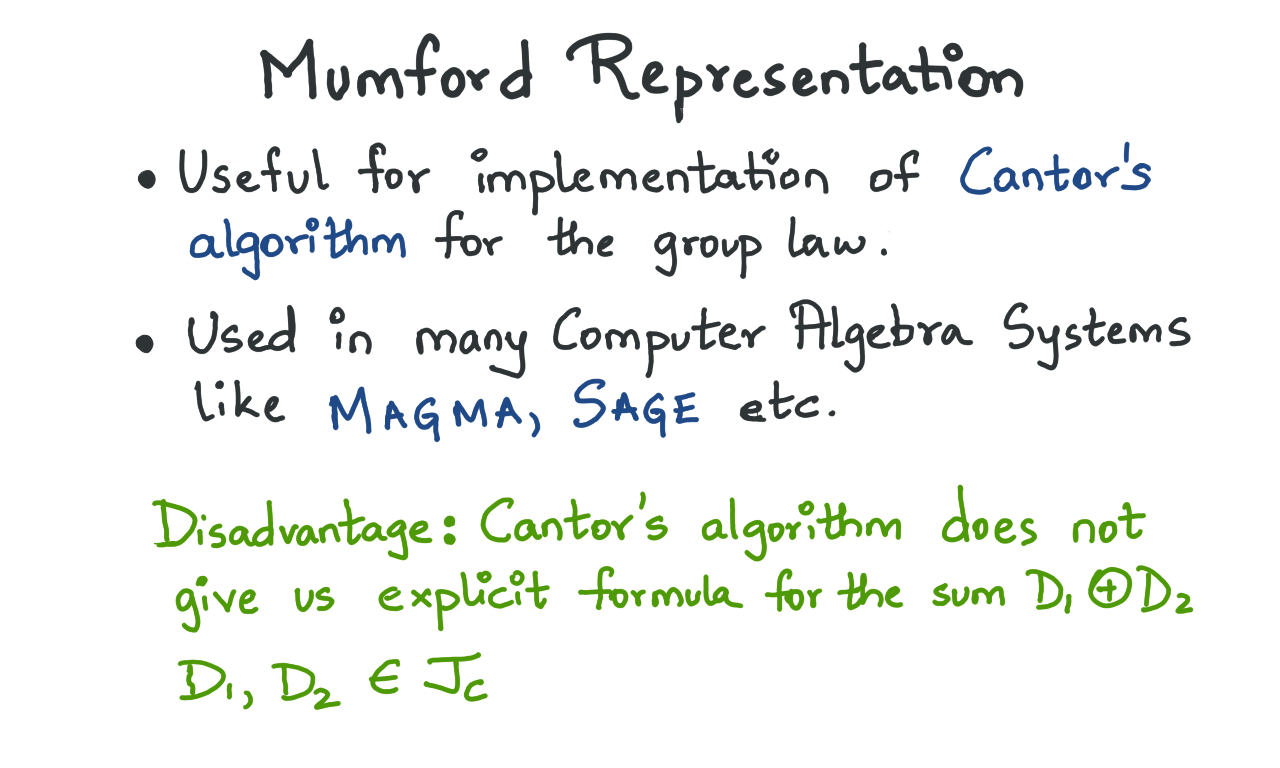 Mumford Representation
• Useful for implementation of Cantor's
algorithm for the group law.
• Used in many Computer Algebra Systems
like MAGMA, SAGE etc.
Disadvantage: Cantor's algorithm does not
give us explicit formula for the sum D₁ ⊕ D₂
D₁, D₂ ∈ J_C